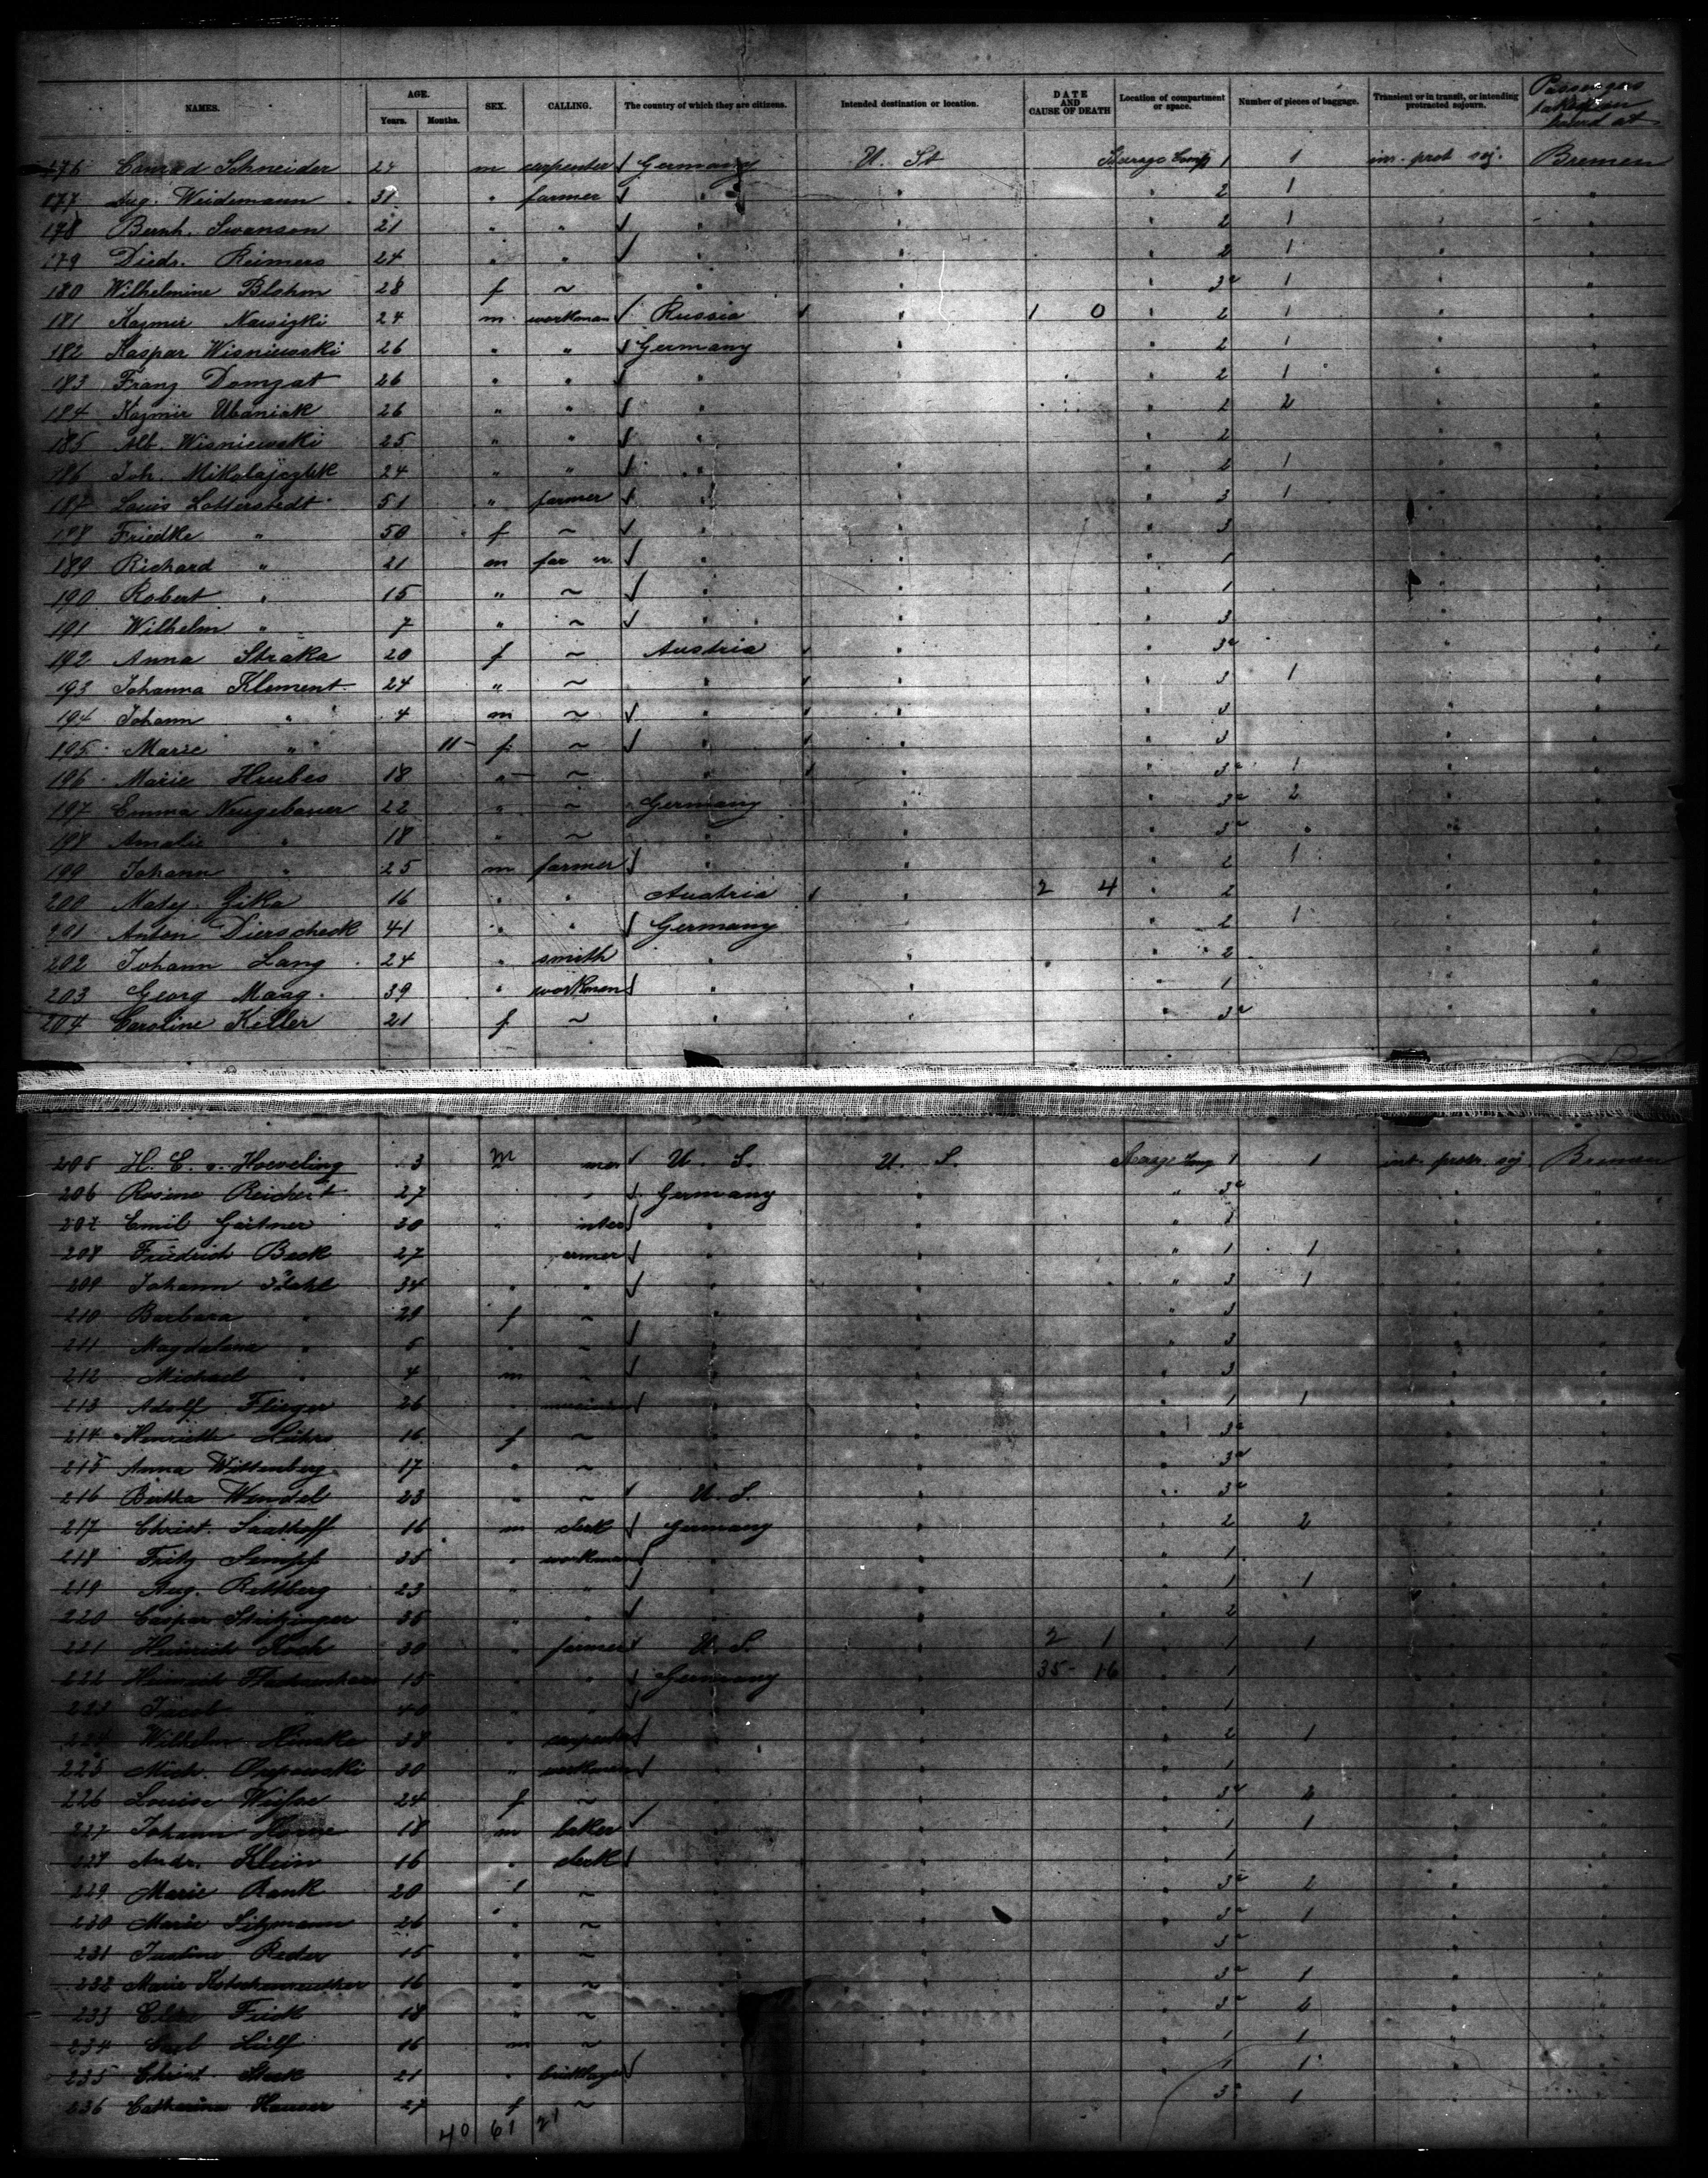 NAMES. AGE. Years. Months. SEX. CALLING. The country of which they are citizens. Intended destination or location. DATE AND CAUSE OF DEATH Location of compartment or space. Number of pieces of baggage. Transient or in transit, or intending protracted sojourn. Passengers taken on board at
176 Conrad Schneider 24 m carpenter √ Germany U. St Steerage Comp 1 1 int. prot soj. Bremen
177 Aug. Weidemann 31 " farmer √ " " " 2 1 " "
178 Bernh. Swanson 21 " " √ " " " 2 1 " "
179 Diedr. Reimers 24 " " √ " " " 2 1 " "
180 Wilhelmine Blohm 28 f ~ " " " 3a 1 " "
181 Kazmir 24 m workman √ Russia " 1 0 " 2 1 " "
182 Kaspar Wisniewski 26 " " √ Germany " " 2 1 " "
183 Franz Domzat 26 " " √ " " " 2 1 " "
184 Kazmir Ubaniak 26 " " √ " " " 2 2 " "
185 Alb. Wisniewski 25 " " √ " " " 2 " "
186 Joh. Mikolajczik 24 " " √ " " " 2 1 " "
187 Louis Lotterstedt 51 " farmer √ " " " 3 1 " "
188 Friedke " 50 f ~ √ " " " 3 " "
189 Richard " 21 m far er √ " " " 1 " "
190 Robert " 15 " ~ √ " " " 1 " "
191 Wilhelm " 7 " ~ √ " " " 3 " "
192 Anna Straka 20 f ~ Austria " " 3a " "
193 Johanna Klement 24 " ~ " " " 3 1 " "
194 Johann " 4 m ~ √ " " " 3 " "
195 Marie " 11 f ~ √ " " " 3 " "
196 Marie Hrubes 18 " ~ " " " 3a 1 " "
197 Emma Neugebauer 22 " ~ Germany " " 3a 2 " "
198 Amalie " 18 " ~ " " " 3a " " "
199 Johann " 25 m farmer √ " " " 2 1 " "
200 Matej Zika 16 " " Austria " 2 4 " 2 " "
201 Anton Dierscheck 41 " " √ Germany " " 2 1 " "
202 Johann Lang 24 " smith " " " 2 " "
203 Georg Maag 39 " workmen √ " " " 1 " "
204 Caroline Keller 21 f ~ " " " 3a " "
205 H. C. v. Hoeveling 3 m mer √ U. S. U. S. Steerage Comp 1 1 int. protr. soj. Bremen
206 Rosine Reichert 27 " √ Germany " " 3a " "
207 Emil Gärtner 30 " inter √ " " " 1 " "
208 Friedrich Beck 27 armer √ " " " 1 1 " "
209 Johann Stahl 34 " " √ " " " 3 1 " "
210 Barbara " 29 f ~ " " " 3 " "
211 Magdalena " 6 " ~ √ " " " 3 " "
212 Michael " 4 m ~ √ " " " 3 " "
213 Adolf Flieger 26 " musician √ " " " 1 1 " "
214 Henriette Lührs 16 f ~ " " " 3a " "
215 Anna Wittenberg 17 " ~ " " " 3a " "
216 Bertha Wendel 23 " ~ √ U. S. " " 3a " "
217 Christ. Saathoff 16 m clerk √ Germany " " 2 2 " "
218 Fritz 35 " workman √ " " " 1 " "
219 Aug. Rettberg 23 " " √ " " " 1 1 " "
220 Caspar Stritzinger 35 " " √ " " " 2 " "
221 Heinrich Koch 30 " farmer √ U. S. " 2 1 " 1 1 " "
222 Heinrich 15 " " √ Germany " 35 16 " 1 " "
223 Jacob " 40 " " √ " " " 1 " "
224 Wilhelm 38 " carpenter √ " " " 2 1 " "
225 Mich. 30 " workmen √ " " " 1 " "
226 Louise 24 f ~ " " " 3a 2 " "
227 Johann 18 m baker √ " " " 1 1 " "
228 Andr. Klein 16 " clerk √ " " " 1 " "
229 Marie Rank 20 f ~ " " " 3a 2 " "
230 Marie Sitzmann 26 " ~ " " " 3a 1 " "
231 Justine Reder 15 " ~ " " " 3a " "
232 Marie Kotschenreuther 16 " ~ " " " 3a 1 " "
233 Frick 18 " ~ " " " 3a 2 " "
234 Carl 16 m ~ " " " 1 1 " "
235 Christ. Stock 21 " bricklayer √ " " " 1 1 " "
236 Catharina Hauser 27 f ~ " " " 3a 1 " "
40 61 21